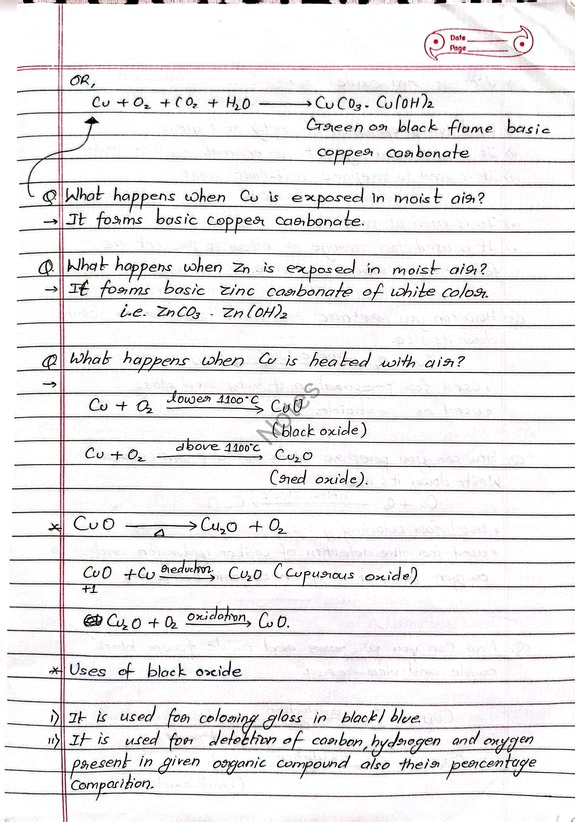 Date
Page
OR,
Cu + O2 + CO2 + H2O ⟶ CuCO3. Cu(OH)2
Green or black flame basic
copper carbonate
Q. What happens when Cu is exposed in moist air?
→ It forms basic copper carbonate.
Q. What happens when Zn is exposed in moist air?
→ It forms basic zinc carbonate of white color.
i.e. ZnCO3 . Zn(OH)2
Q What happens when Cu is heated with air?
→
Cu + O2 lower 1100°C ⟶ CuO
(black oxide)
Notes
Cu + O2 above 1100°C ⟶ Cu2O
(red oxide).
* CuO Δ ⟶ Cu2O + O2
CuO + Cu reduction ⟶ Cu2O (Cupurous oxide)
+1
Cu2O + O2 oxidation ⟶ CuO.
* Uses of black oxide
i) It is used for coloring glass in black/blue.
ii) It is used for detection of carbon, hydrogen and oxygen
present in given organic compound also their percentage
Composition.